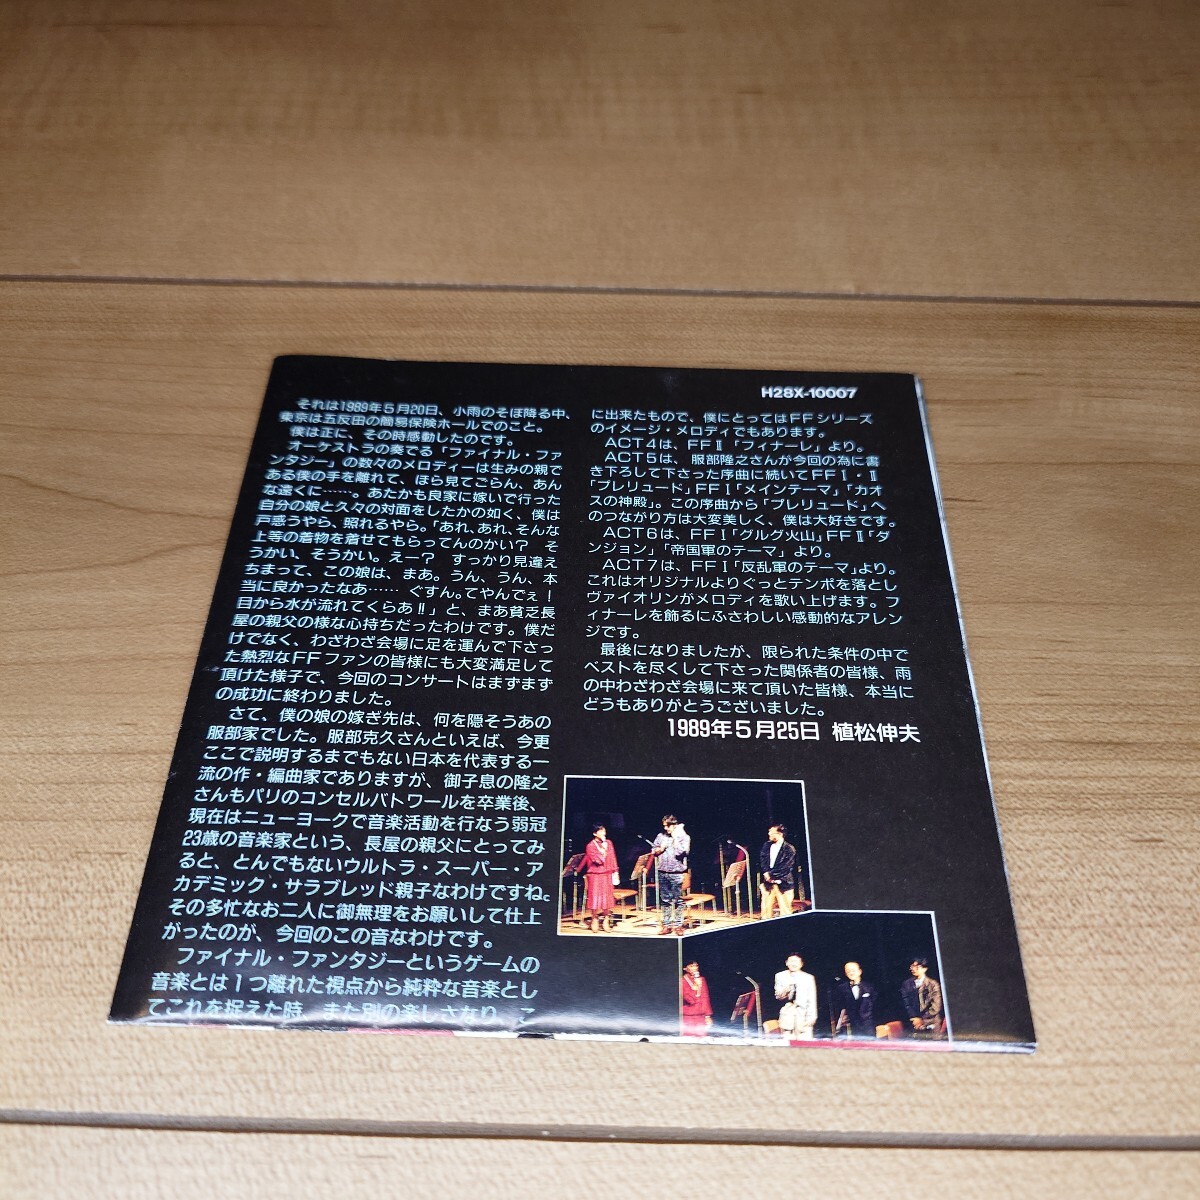 H28X-10007
それは1989年5月20日、小雨のそぼ降る中、
東京は五反田の簡易保険ホールでのこと。
僕は正に、その時感動したのです。
オーケストラの奏でる「ファイナル・ファ
ンタジー」の数々のメロディーは生みの親で
ある僕の手を離れて、ほら見てごらん、あん
な遠くに……。あたかも良家に嫁いで行った
自分の娘と久々の対面をしたかの如く、僕は
戸惑うやら、照れるやら。「あれ、あれ、そんな
上等の着物を着せてもらってんのかい? そ
うかい、そうかい。えー? すっかり見違え
ちまって、この娘は、まあ。うん、うん、本
当に良かったなあ…… ぐすん。てやんでぇ!
目から水が流れてくらあ!!」と、まあ貧乏長
屋の親父の様な心持ちだったわけです。僕だ
けでなく、わざわざ会場に足を運んで下さっ
た熱烈なFFファンの皆様にも大変満足して
頂けた様子で、今回のコンサートはまずまず
の成功に終わりました。
さて、僕の娘の嫁ぎ先は、何を隠そうあの
服部家でした。服部克久さんといえば、今更
ここで説明するまでもない日本を代表する一
流の作・編曲家でありますが、御子息の隆之
さんもパリのコンセルバトワールを卒業後、
現在はニューヨークで音楽活動を行なう弱冠
23歳の音楽家という、長屋の親父にとってみ
ると、とんでもないウルトラ・スーパー・ア
カデミック・サラブレッド親子なわけですね。
その多忙なお二人に御無理をお願いして仕上
がったのが、今回のこの音なわけです。
ファイナル・ファンタジーというゲームの
音楽とは1つ離れた視点から純粋な音楽とし
てこれを捉えた時、また別の楽しさなり、こ
に出来たもので、僕にとってはFFシリーズ
のイメージ・メロディでもあります。
ACT4は、FFⅡ「フィナーレ」より。
ACT5は、服部隆之さんが今回の為に書
き下ろして下さった序曲に続いてFFⅠ・Ⅱ
「プレリュード」FFⅠ「メインテーマ」「カオ
スの神殿」。この序曲から「プレリュード」へ
のつながり方は大変美しく、僕は大好きです。
ACT6は、FFⅠ「グルグ火山」FFⅡ「ダ
ンジョン」「帝国軍のテーマ」より。
ACT7は、FFⅠ「反乱軍のテーマ」より。
これはオリジナルよりぐっとテンポを落とし
ヴァイオリンがメロディを歌い上げます。フ
ィナーレを飾るにふさわしい感動的なアレン
ジです。
最後になりましたが、限られた条件の中で
ベストを尽くして下さった関係者の皆様、雨
の中わざわざ会場に来て頂いた皆様、本当に
どうもありがとうございました。
1989年5月25日 植松伸夫